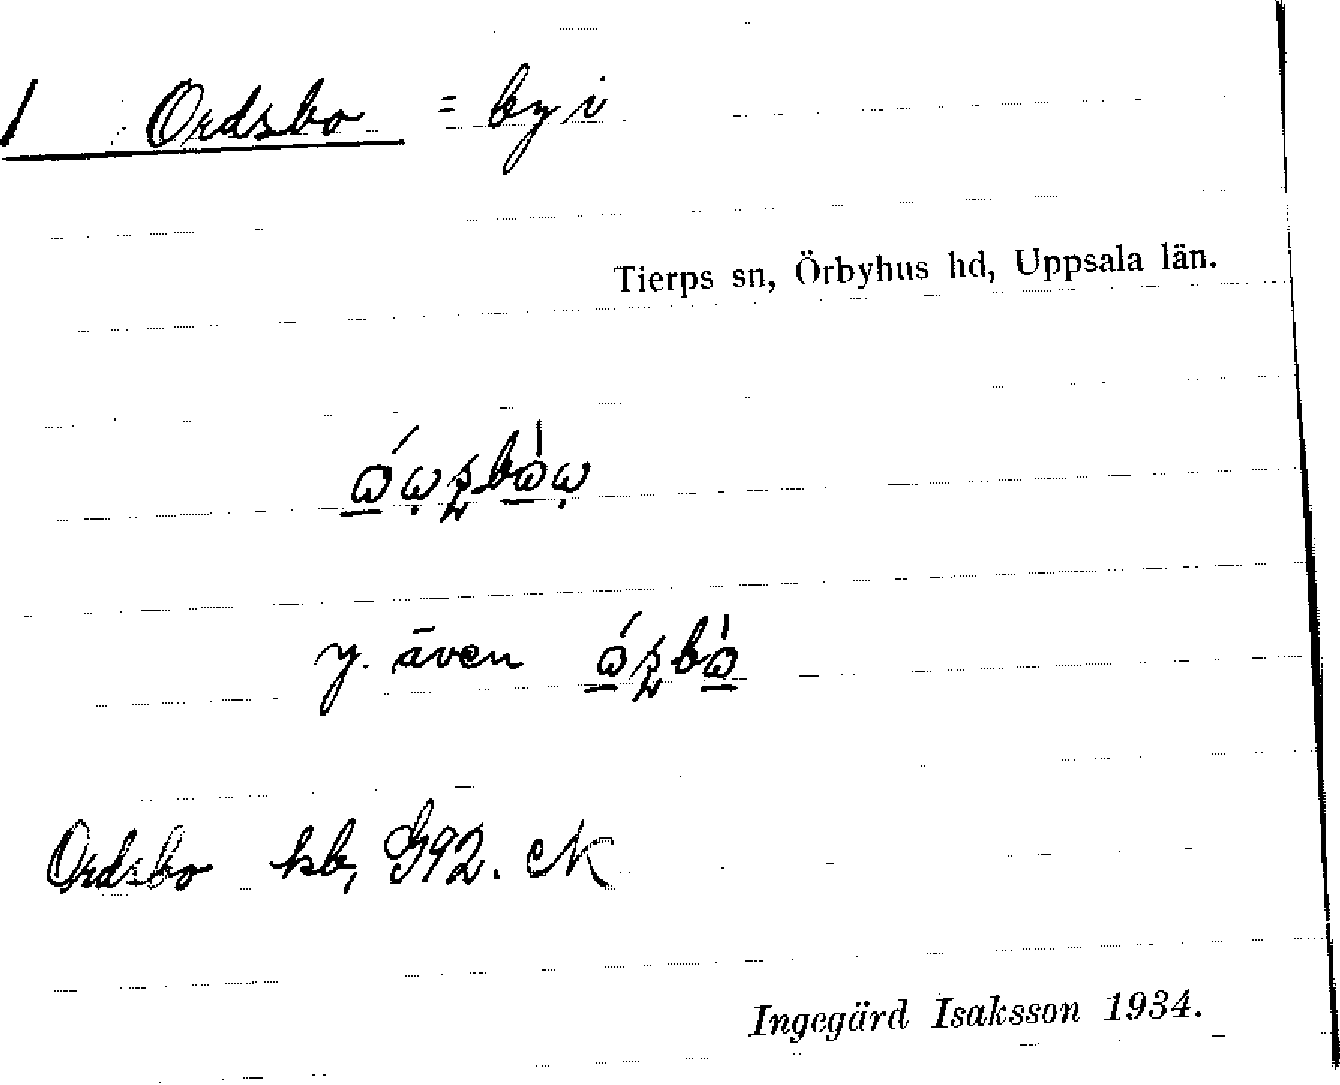 1 Ordsbo = by i
Tierps sn, Örbyhus hd, Uppsala län.
y. även
Ordsbo hb, G92. N
Ingegärd Isaksson 1934.